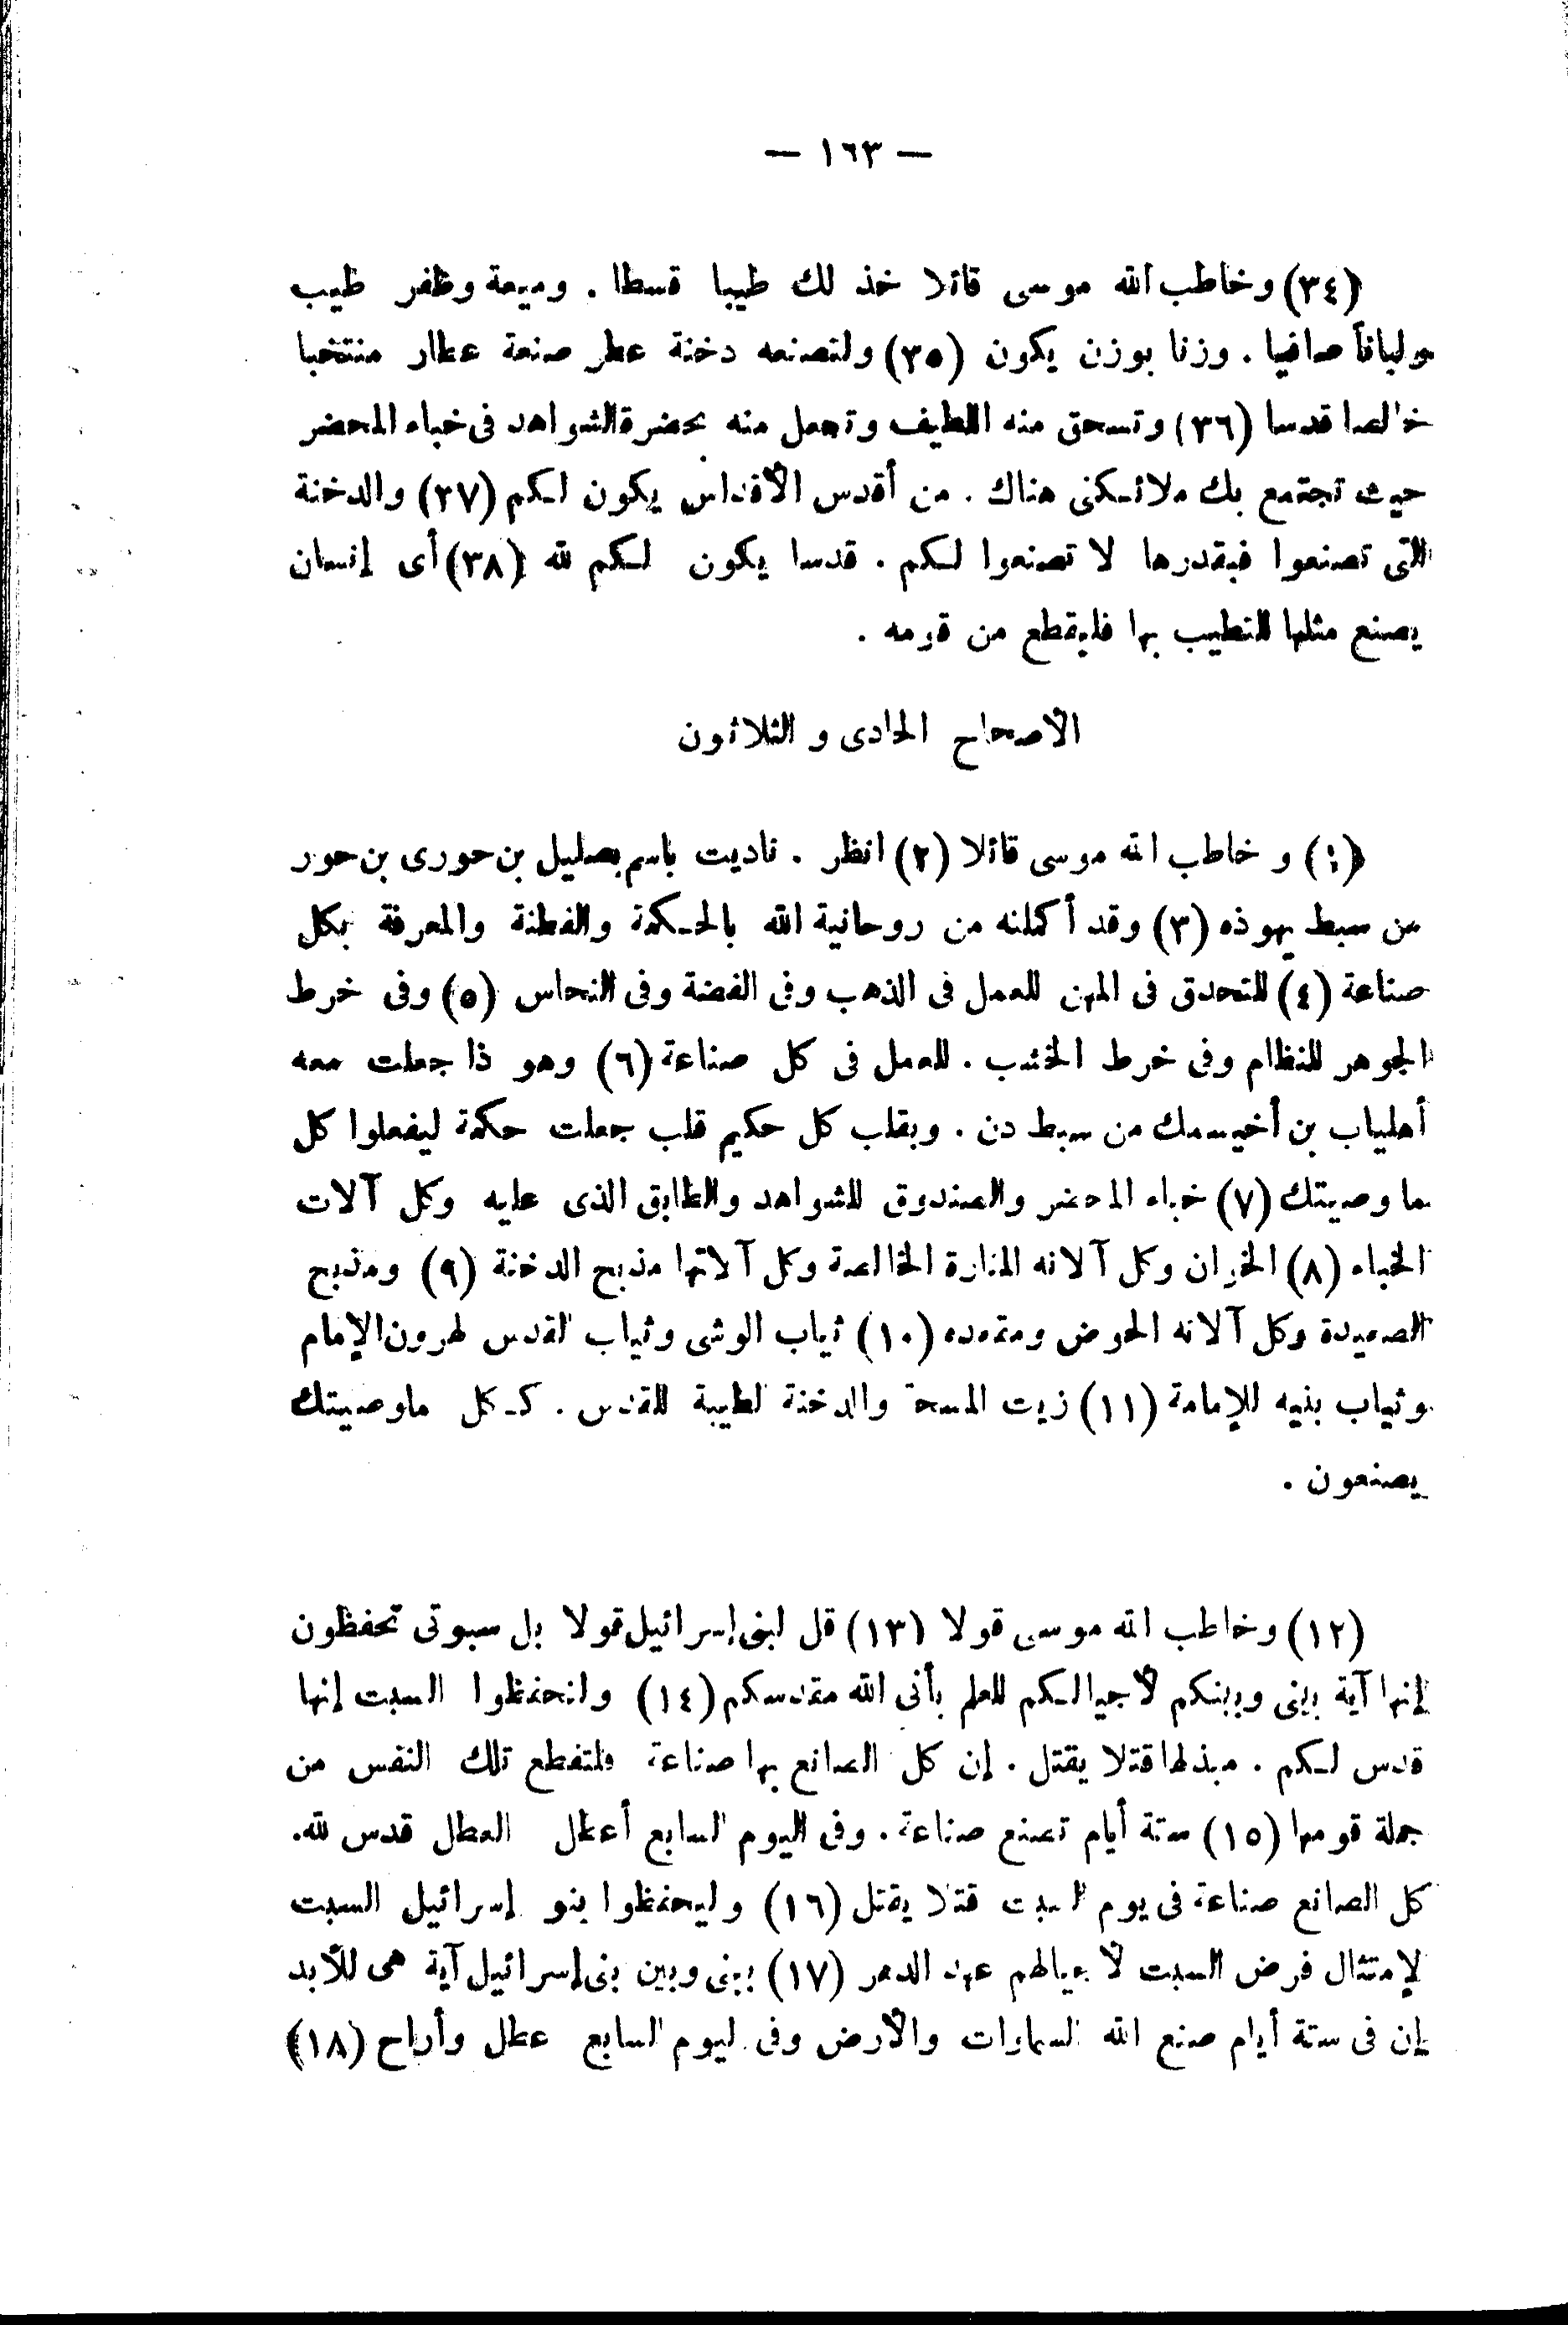 — ١٦٣ —
(٣٤) وخاطب الله موسى قائلا خذ لك طيبا قسطا . وميعة وظفر طيب
ولباناً صافيا . وزنا بوزن يكون (٣٥) ولتصنعه دخنة عطر صنعة عطار منتخبا
خالصا قدسا (٣٦) وتسحق منه اللطيف وتجعل منه بحضرة الشواهد فى خباء المحضر
حيث تجتمع بك ملائكتى هناك . من أقدس الأقداس يكون لكم (٣٧) والدخنة
التى تصنعوا فبقدرها لا تصنعوا لكم . قدسا يكون لكم لله (٣٨) أى إنسان
يصنع مثلها للتطيب بها فليقطع من قومه .
الأصحاح الحادى و الثلاثون
(١) و خاطب الله موسى قائلا (٢) انظر . ناديت باسم بصليل بن حورى بن حور
من سبط يهوذه (٣) وقد أكملنه من روحانية الله بالحكمة والفطنة والمعرفة بكل
صناعة (٤) للتحدق فى المهن للعمل فى الذهب وفى الفضة وفى النحاس (٥) وفى خرط
الجوهر للنظام وفى خرط الخشب . للعمل فى كل صناعة (٦) وهو ذا جعلت معه
أهلياب بن أخيسمك من سبط دن . وبقلب كل حكيم قلب جعلت حكمة ليفعلوا كل
ما وصيتك (٧) خباء المحضر والصندوق للشواهد والطابق الذى عليه وكل آلات
الخباء (٨) الخران وكل آلانه المنارة الخالصة وكل آلاتها مذبح الدخنة (٩) ومذبح
الصعيدة وكل آلانه الحوض ومقعده (١٠) ثياب الوشى وثياب القدس لهرون الإمام
وثياب بنيه للإمامة (١١) زيت المسحة والدخنة لطيبة للقدس . ككل ماوصيتك
يصنعون .
(١٢) وخاطب الله موسى قولا (١٣) قل لبنى إسرائيل قولا بل سبوتى تحفظون
إنها آية بينى وبينكم لأجيالكم للعلم بأنى الله مقدسكم (١٤) وانحفظوا السبت إنها
قدس لكم . مبذلها قتلا يقتل . إن كل الصانع بها صناعة فلتقطع تلك النفس من
جملة قومها (١٥) ستة أيام تصنع صناعة . وفى اليوم السابع أعطل العطل قدس لله.
كل الصانع صناعة فى يوم السبت قتلا يقتل (١٦) وليحفظوا بنو إسرائيل السبت
لإمتثال فرض السبت لأجيالهم عهد الدهر (١٧) بينى وبين بنى إسرائيل آية هى للأبد
إن فى ستة أيام صنع الله السماوات والأرض وفى ليوم السابع عطل وأراح (١٨)